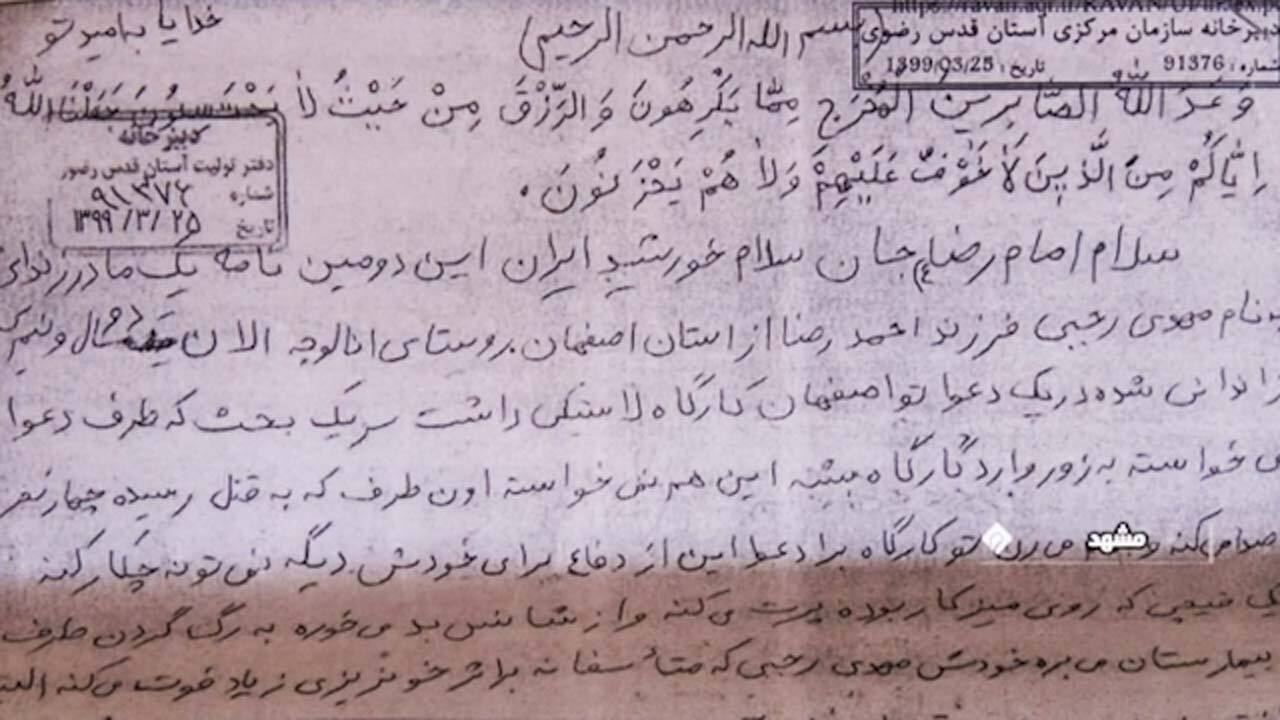 خدایا به امید تو
بسم الله الرحمن الرحیم
دبیرخانه سازمان مرکزی آستان قدس رضوی
شماره : 91376 تاریخ : 1399/03/25
وَعَدَ اللهُ الصّابِرینَ الْمَخْرَجِ مِمّا یَکْرَهُونَ وَالرِّزْقَ مِنْ حَیْثُ لاٰ یَحْتَسِبُونَ جَعَلْنَا اللهُ
دبیرخانه
دفتر تولیت آستان قدس رضوی
شماره ۹۱۳۷۶
تاریخ ۱۳۹۹/۳/۲۵
اِیّاکُمْ مِنَ الَّذینَ لاٰ خَوْفٌ عَلَیْهِمْ وَلاٰ هُمْ یَحْزَنُونَ .
سلام امام رضا(ع) جان سلام خورشید ایران این دومین نامه یک مادر زندانی
به نام مهدی رجبی فرزند احمد رضا از استان اصفهان روستای الان دو سال و نیم
زندانی شده در یک دعوا تو اصفهان کارگاه لاستیکی داشت سر یک بحث که طرف دعوا
می خواسته به زور وارد کارگاه بشه این هم نمی خواسته اون طرف که به قتل رسیده چهار نفر
می کنه می رن تو کارگاه برا دعوا این از دفاع برای خودش دیگه نمی تونه چکار کنه
یک قیچی که روی میز کار بوده پرت می کنه و از شانس بد می خوره به رگ گردن طرف
بیمارستان می بره خودش مهدی رجبی که متأسفانه بر اثر خونریزی زیاد فوت می کنه
مشهد